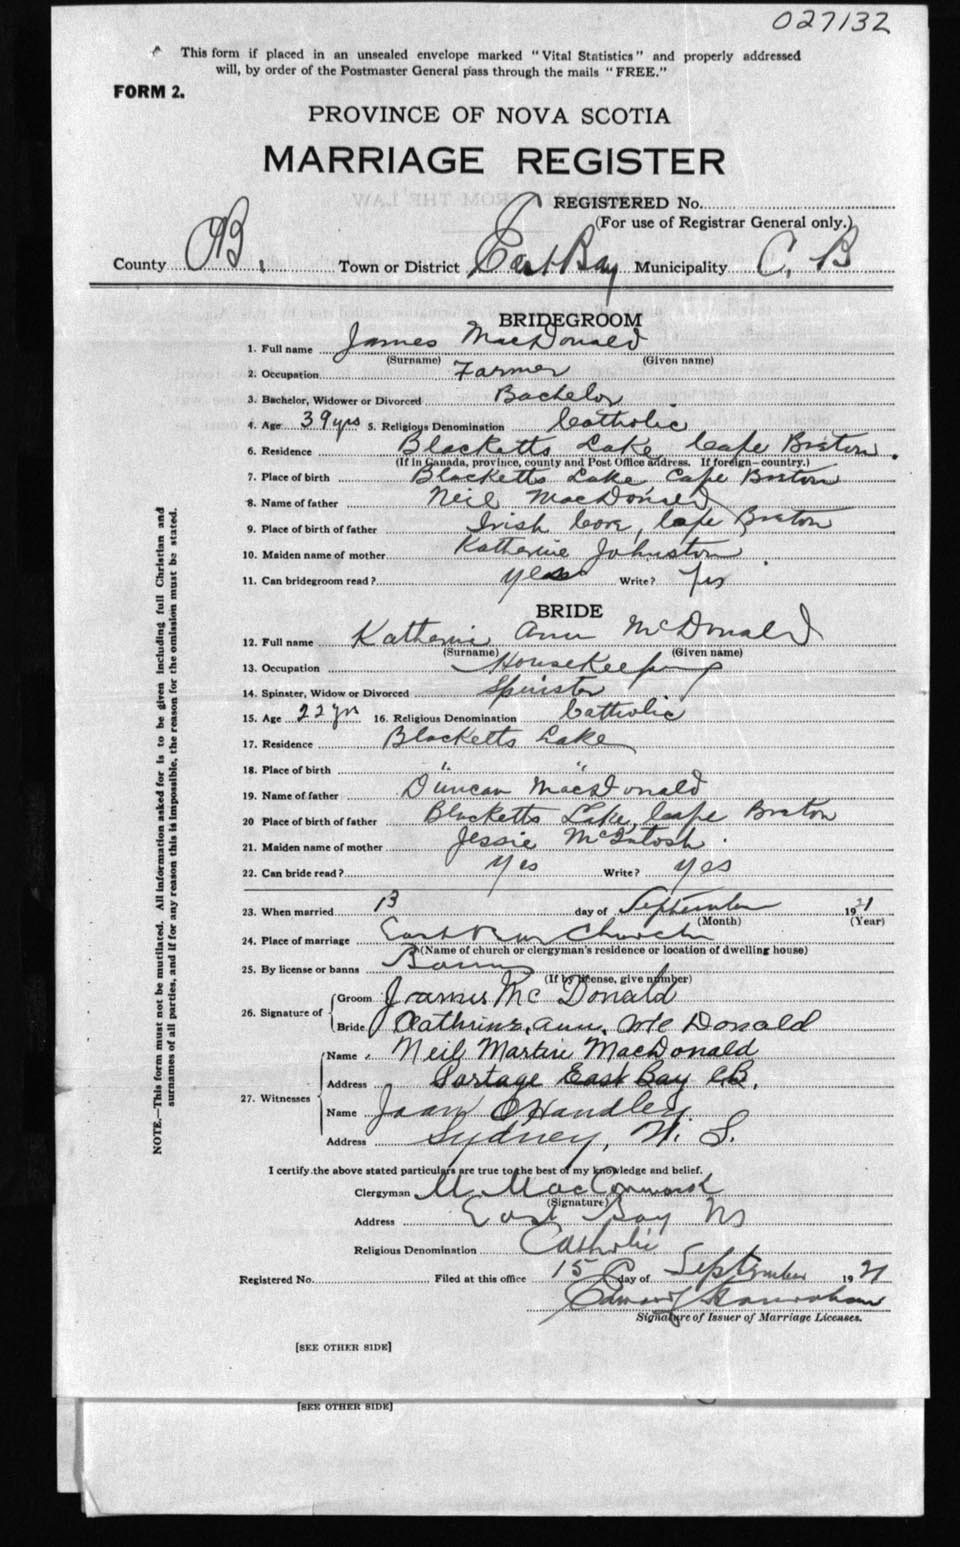 027132
This form if placed in an unsealed envelope marked "Vital Statistics" and properly addressed
will, by order of the Postmaster General pass through the mails "FREE."
FORM 2.
PROVINCE OF NOVA SCOTIA
MARRIAGE REGISTER
REGISTERED No.
(For use of Registrar General only.)
County CB. Town or District East Bay Municipality C. B
BRIDEGROOM
1. Full name James MacDonald
(Surname) (Given name)
2. Occupation Farmer
3. Bachelor, Widower or Divorced Bachelor
4. Age 39 yrs 5. Religious Denomination Catholic
6. Residence Blacketts Lake, Cape Breton.
(If in Canada, province, county and Post Office address. If foreign—country.)
7. Place of birth Blacketts Lake Cape Breton
8. Name of father Neil MacDonald
9. Place of birth of father Irish Cove, Cape Breton
10. Maiden name of mother Katherine Johnston
11. Can bridegroom read? yes Write? Yes
BRIDE
12. Full name Katherine Ann McDonald
(Surname) (Given name)
13. Occupation Housekeeping
14. Spinster, Widow or Divorced Spinster
15. Age 22 yrs 16. Religious Denomination Catholic
17. Residence Blacketts Lake
18. Place of birth " "
19. Name of father Duncan MacDonald
20 Place of birth of father Blacketts Lake, Cape Breton
21. Maiden name of mother Jessie McIntosh
22. Can bride read? Yes Write? Yes
23. When married 13 day of September 1921
(Month) (Year)
24. Place of marriage East Bay Church
(Name of church or clergyman's residence or location of dwelling house)
25. By license or banns Banns
(If by license, give number)
26. Signature of Groom James Mc Donald
Bride Cathrine, ann, Mc Donald
27. Witnesses Name Neil Martin MacDonald
Address Portage East Bay C.B.
Name Joan O'Handley
Address Sydney, N. S.
I certify the above stated particulars are true to the best of my knowledge and belief.
Clergyman M. MacCormack
(Signature)
Address East Bay NS
Religious Denomination Catholic
Registered No. Filed at this office 15 day of September 1921
Edward
Signature of Issuer of Marriage Licenses.
[SEE OTHER SIDE]
[SEE OTHER SIDE]
NOTE.—This form must not be mutilated. All information asked for is to be given including full Christian and
surnames of all parties, and if for any reason this is impossible, the reason for the omission must be stated.